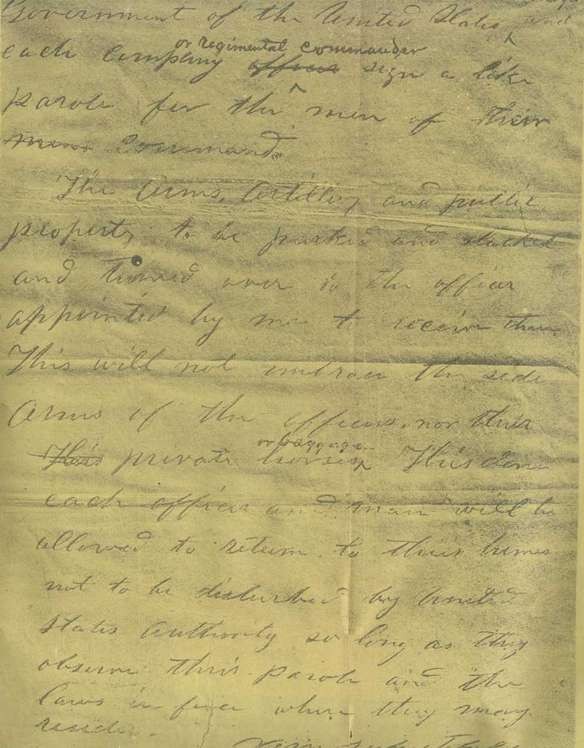 Government of the United States, and
each company or regimental commander officer sign a like
parole for the men of their
command.
The Arms, Artillery and public
property to be parked and stacked
and turned over to the officer
appointed by me to receive them
This will not embrace the side
Arms of the officers, nor their
This private horses or baggage. This done
each officer and man will be
allowed to return to their homes
not to be disturbed by United
States Authority so long as they
observe their parole and the
laws in force where they may
reside.
Very